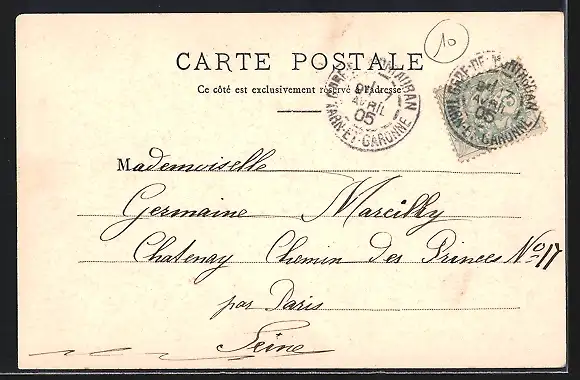 10
CARTE POSTALE
Ce côté est exclusivement réservé à l'adresse
GARE-DE-MONTAUBAN
AVRIL
05
TARN-ET-GARONNE
GARE-DE-MONTAUBAN
AVRIL
05
TARN-ET-GARONNE
Mademoiselle
Germaine Marcilly
Chatenay Chemin des Princes No 17
par Paris
Seine